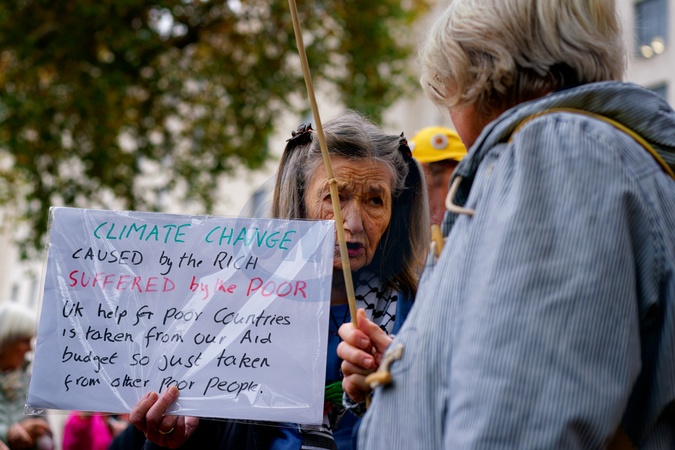 CLIMATE CHANGE
CAUSED by the RICH
SUFFERED by the POOR
UK help for poor Countries
is taken from our Aid
budget so just taken
from other poor people.